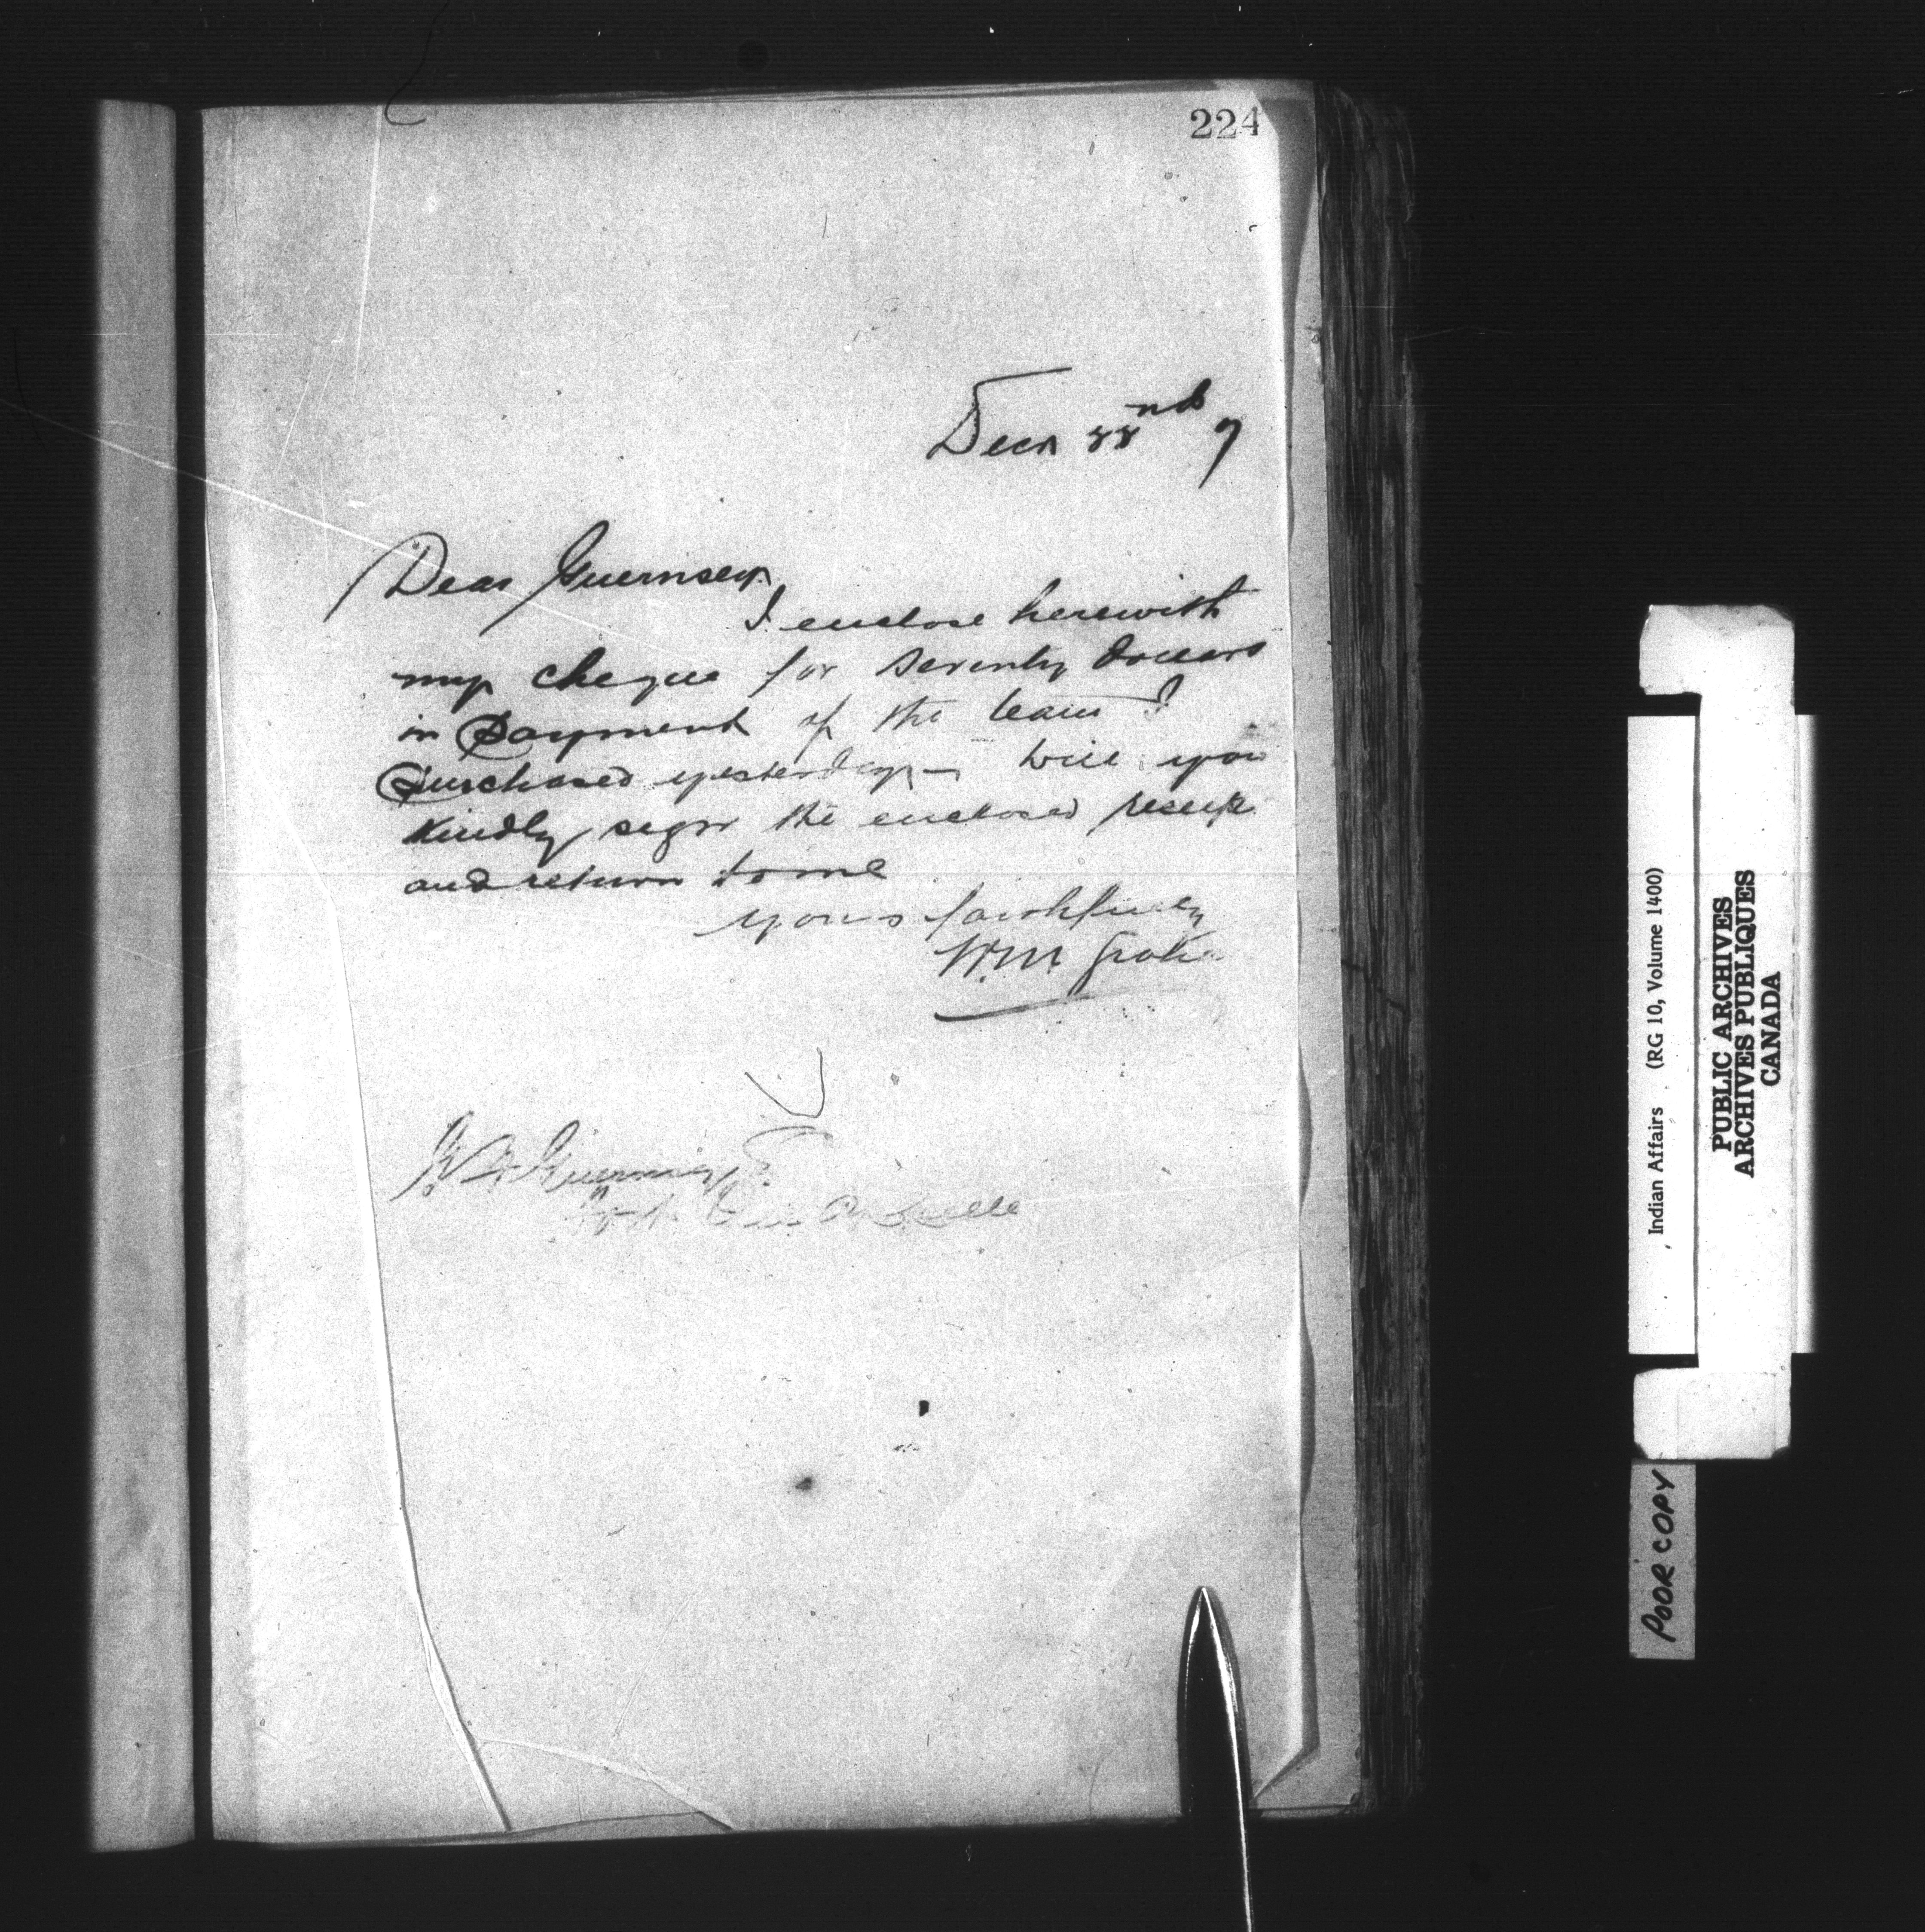 224
Decr 22nd 7
Dear Guernsey
I enclose herewith
my cheque for seventy dollars
in payment of the team I
purchased yesterday – will you
kindly sign the enclosed receipt
and return to me
yours faithfully
W.M. Graham
Guernsey
Indian Affairs (RG 10, Volume 1400)
PUBLIC ARCHIVES
ARCHIVES PUBLIQUES
CANADA
POOR COPY